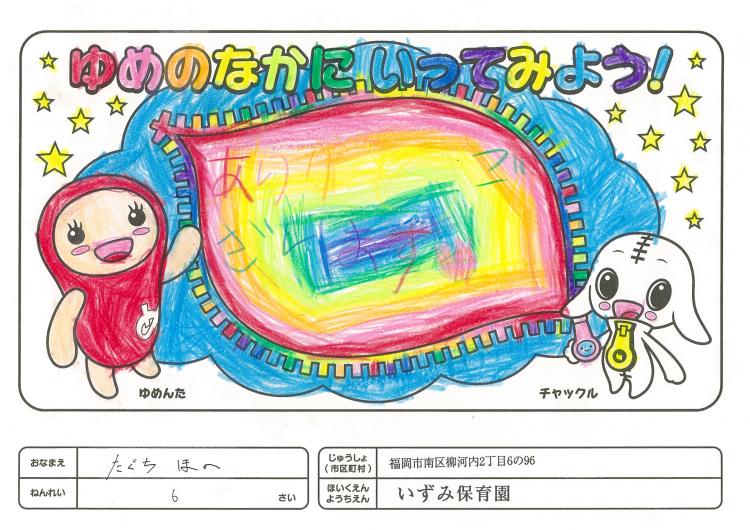 ゆめのなかに いってみよう!
あり ご
ざいます
ゆめんた
チャックル
おなまえ たぐち
ねんれい 6 さい
じゅうしょ
(市区町村) 福岡市南区柳河内2丁目6の96
ほいくえん
ようちえん いずみ保育園